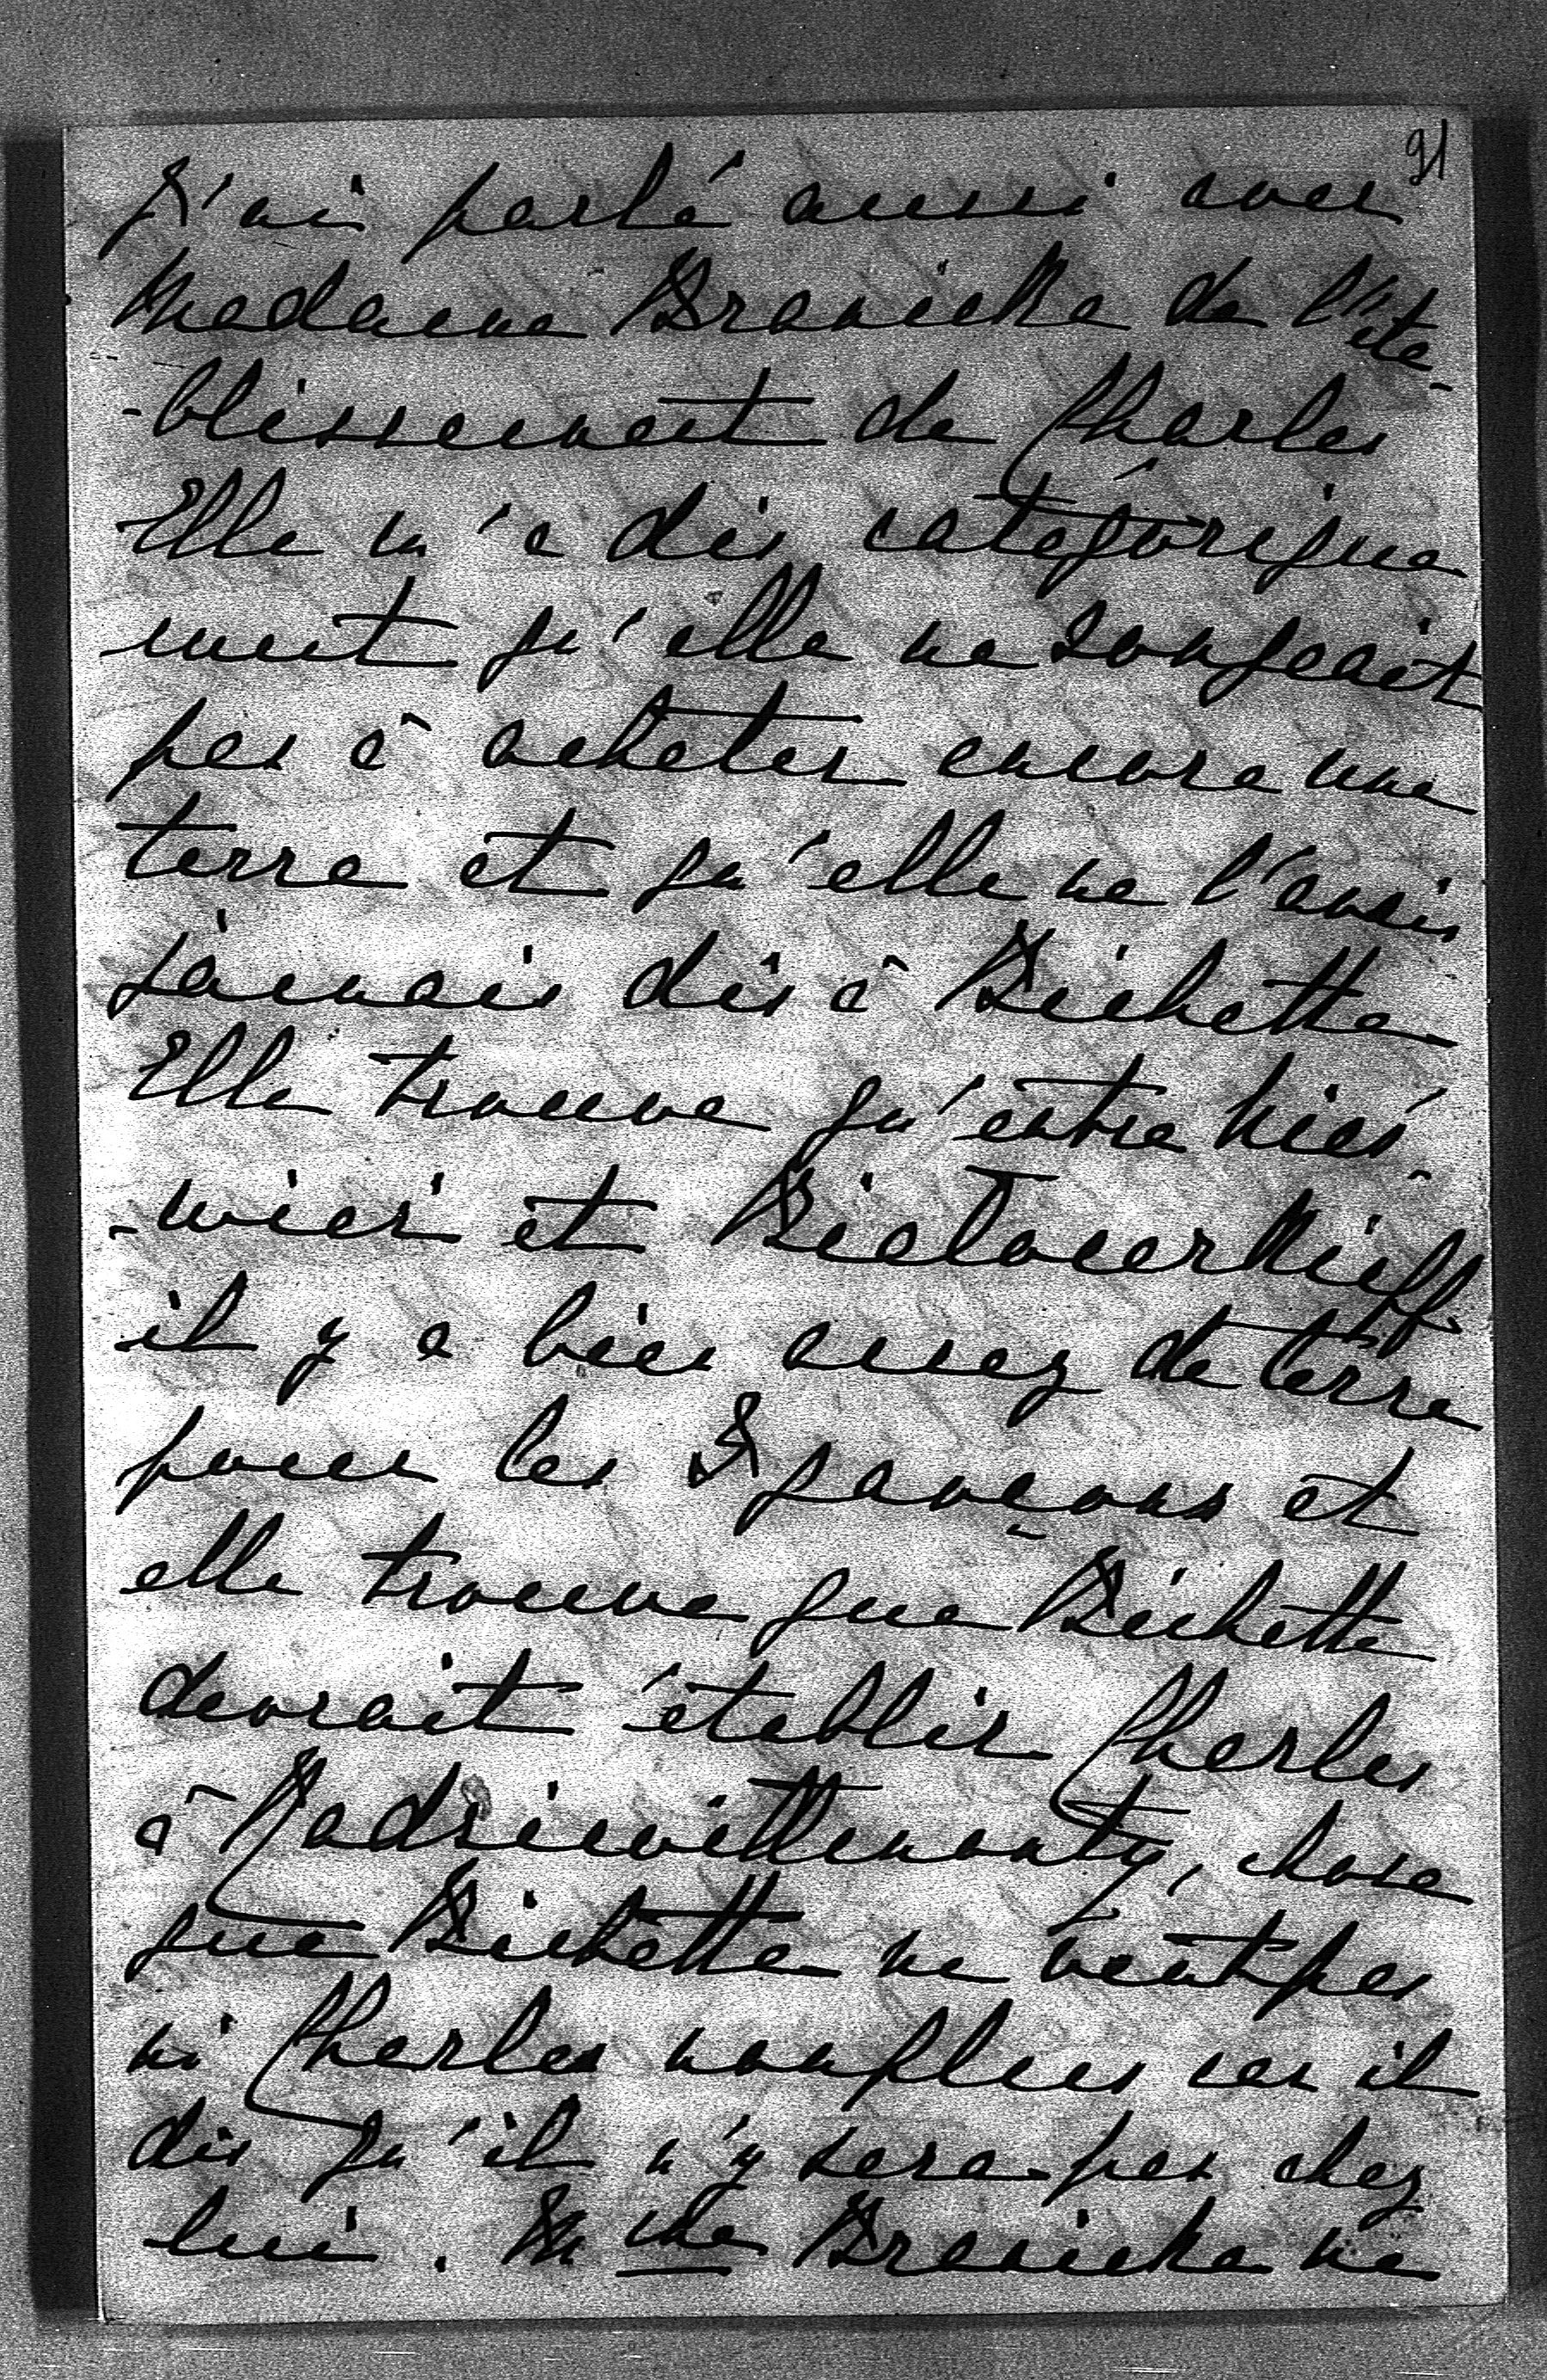 91
J'ai parlé aussi avec
Madame Branicka de l'éta-
-blissement de Charles
Elle m'a dis catégorique
ment qu'elle ne songeait
pas à acheter encore une
terre et qu'elle ne l'avais
jamais dis à Bichette
Elle trouve qu'entre Nies-
-wies et Bialocerkieff
il y a bien assez de terre
pour les 3 garçons et
elle trouve que Bichette
devrait établir Charles
à Radziwillmonty, chose
que Bichette ne veut pas
ni Charles non plus car il
dis qu'il n'y sera pas chez
lui. Mme Branicka ne